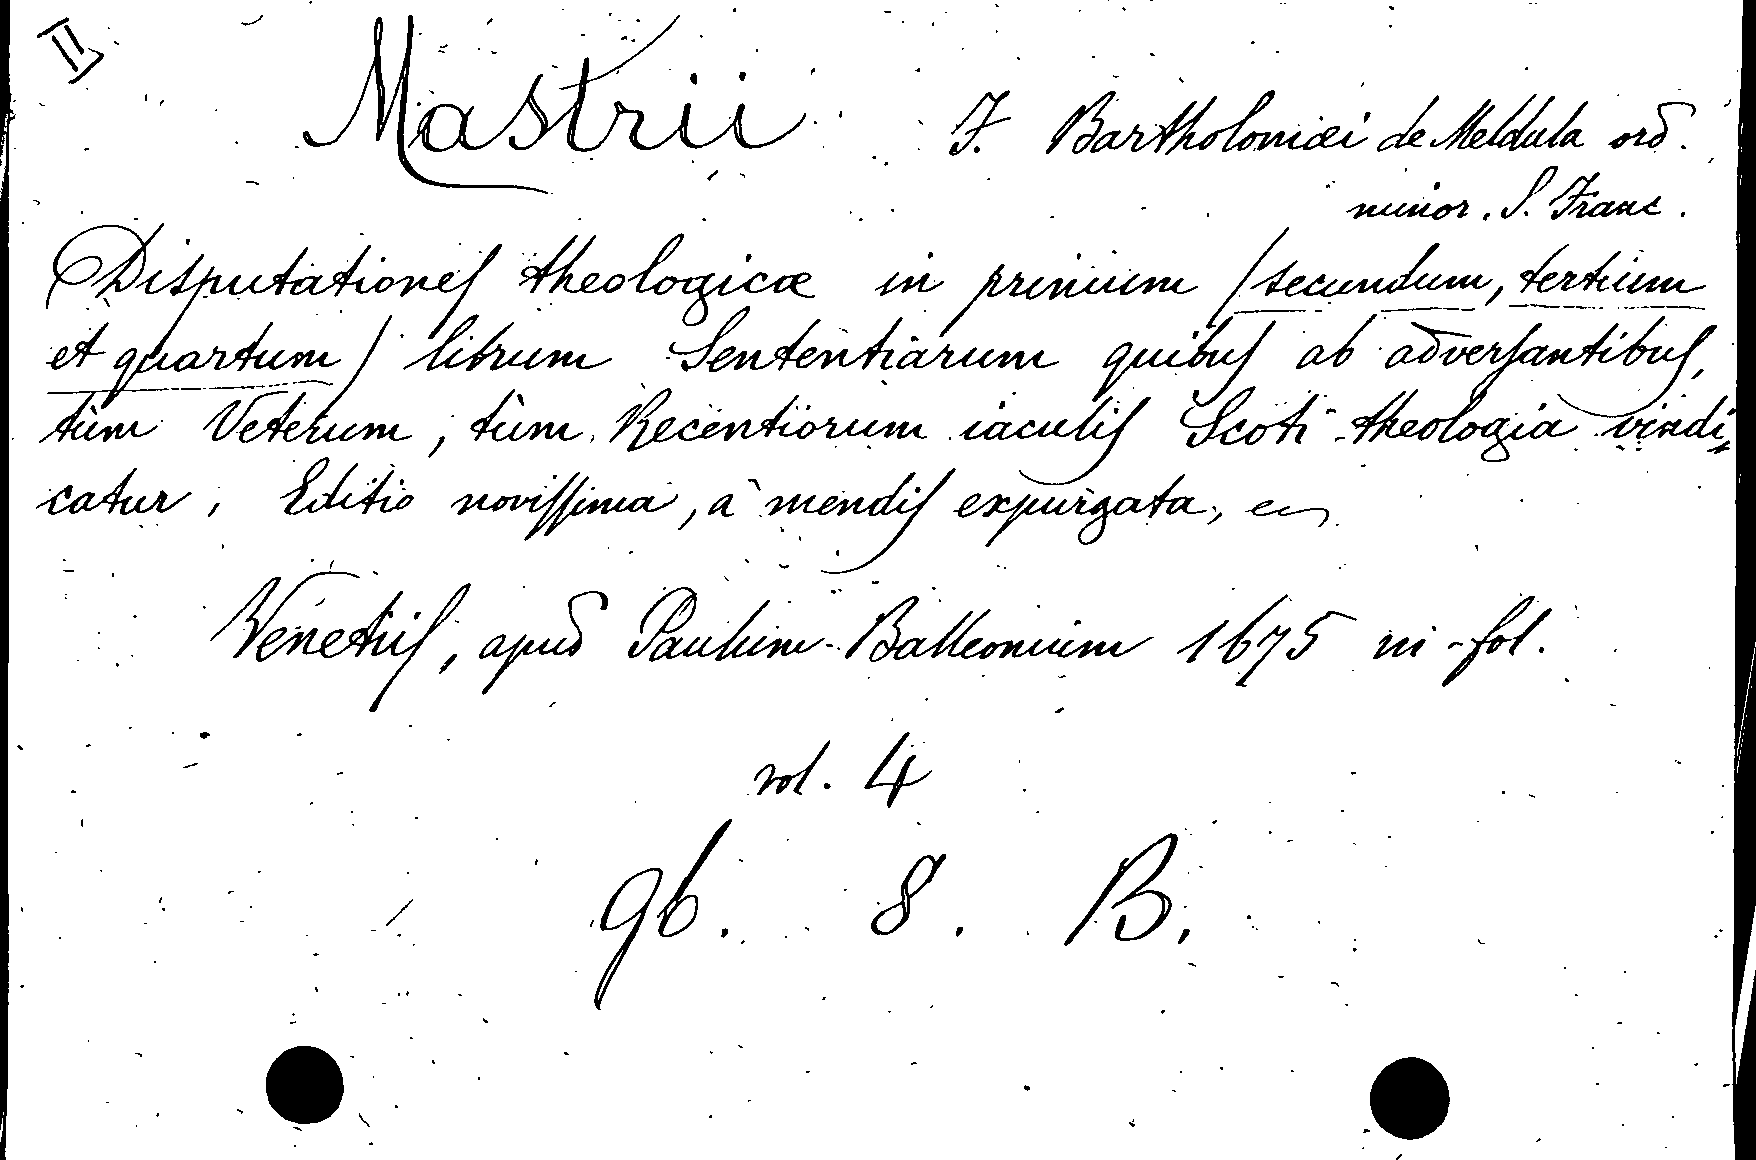 II
Mastrii F. Bartholomæi de Meldula ord.
minor. S. Franc.
Disputationes theologicæ in primum /secundum, tertium
et quartum/ librum Sententiarum quibus ab adversantibus,
tùm Veterum, tùm Recentiorum iaculis Scoti theologia vindi=
catur. Editio novissima, à mendis expurgata,
Venetiis, apud Paulum Balleonium 1675 in-fol.
vol. 4
96. 8. B.